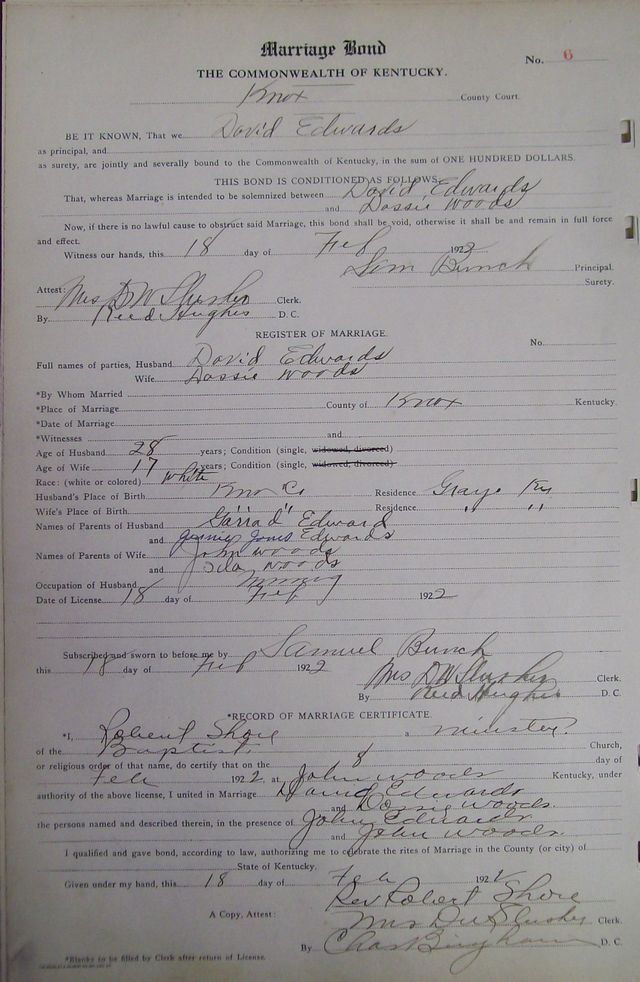 Marriage Bond
No. 6
THE COMMONWEALTH OF KENTUCKY.
Knox County Court.
BE IT KNOWN, That we David Edwards
as principal, and
as surety, are jointly and severally bound to the Commonwealth of Kentucky, in the sum of ONE HUNDRED DOLLARS.
THIS BOND IS CONDITIONED AS FOLLOWS.
That, whereas Marriage is intended to be solemnized between David Edwards
and Dossie Woods
Now, if there is no lawful cause to obstruct said Marriage, this bond shall be void, otherwise it shall be and remain in full force
and effect.
Witness our hands, this 18 day of Feb 1922
Sam Bunch Principal.
Surety.
Attest:
Mrs D W Slusher Clerk.
By Reed Hughes D. C.
REGISTER OF MARRIAGE.
No.
Full names of parties, Husband David Edwards
Wife Dossie Woods
*By Whom Married
*Place of Marriage County of Knox Kentucky.
*Date of Marriage
*Witnesses and
Age of Husband 28 years; Condition (single, widowed, divorced)
Age of Wife 17 years; Condition (single, widowed, divorced)
Race: (white or colored) White
Husband's Place of Birth Knox Co Residence Grays Ky
Wife's Place of Birth " " Residence " "
Names of Parents of Husband Garrad Edward
and Jones Edwards
Names of Parents of Wife John Woods
and Woods
Occupation of Husband mining
Date of License 18 day of Feb 1922
Subscribed and sworn to before me by Samuel Bunch
this 18 day of Feb 1922
Mrs D W Slusher Clerk.
By Reed Hughes D. C.
*RECORD OF MARRIAGE CERTIFICATE.
*I, Robert Shore a minister.
of the Baptist. Church,
or religious order of that name, do certify that on the 8 day of
Feb 1922 at John Woods Kentucky, under
authority of the above license, I united in Marriage David Edwards
and Dossie Woods.
the persons named and described therein, in the presence of John Edwards
and John Woods.
I qualified and gave bond, according to law, authorizing me to celebrate the rites of Marriage in the County (or city) of
State of Kentucky.
Given under my hand, this 18 day of Feb 1922
Rev Robert Shore
A Copy, Attest: Mrs D W Slusher Clerk.
By Chas Bingham D. C.
*Blanks to be filled by Clerk after return of License.